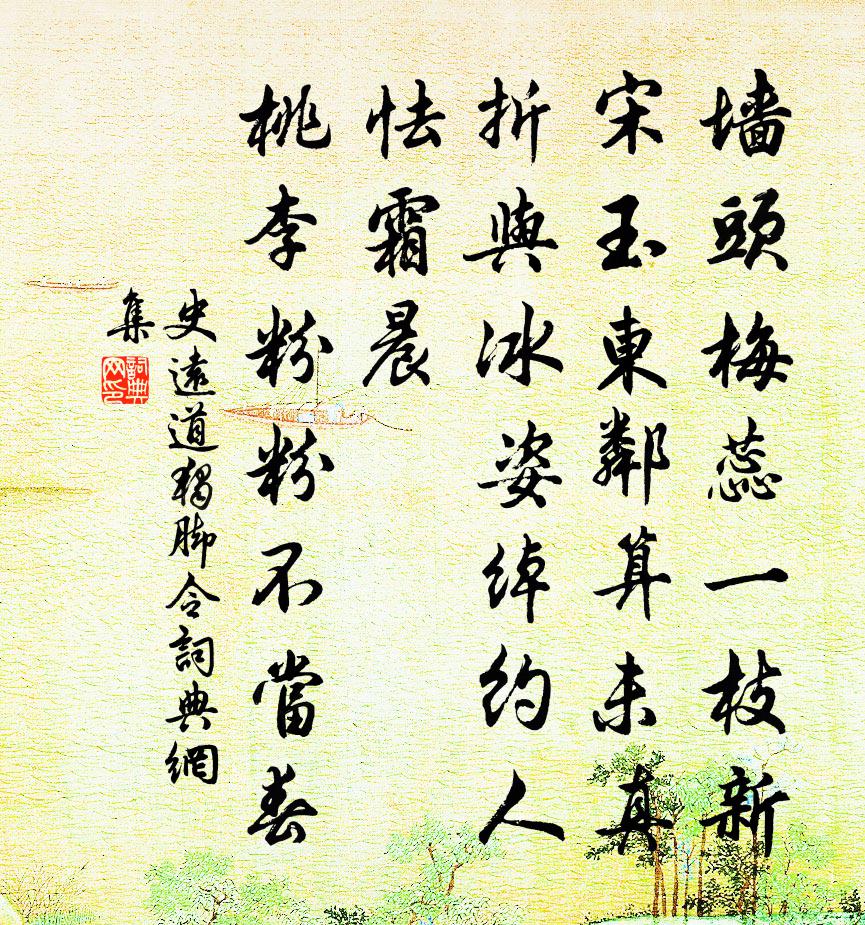 墙頭梅蕊一枝新
宋玉東鄰算未真
折與冰姿綽約人
怯霜晨
桃李粉粉不當春
史遠道獨脚令詞典網
集
詞典
网印